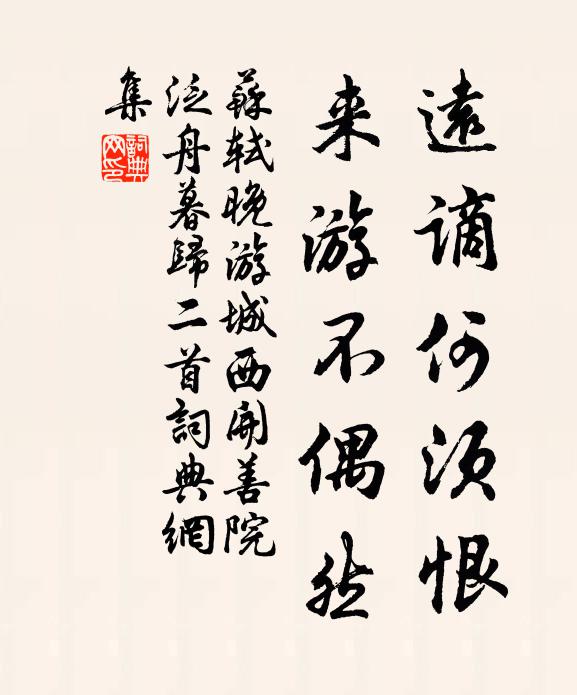 遠謫何須恨
来游不偶然
蘇軾晚游城西開善院
泛舟暮歸二首詞典網
集
詞典
网印